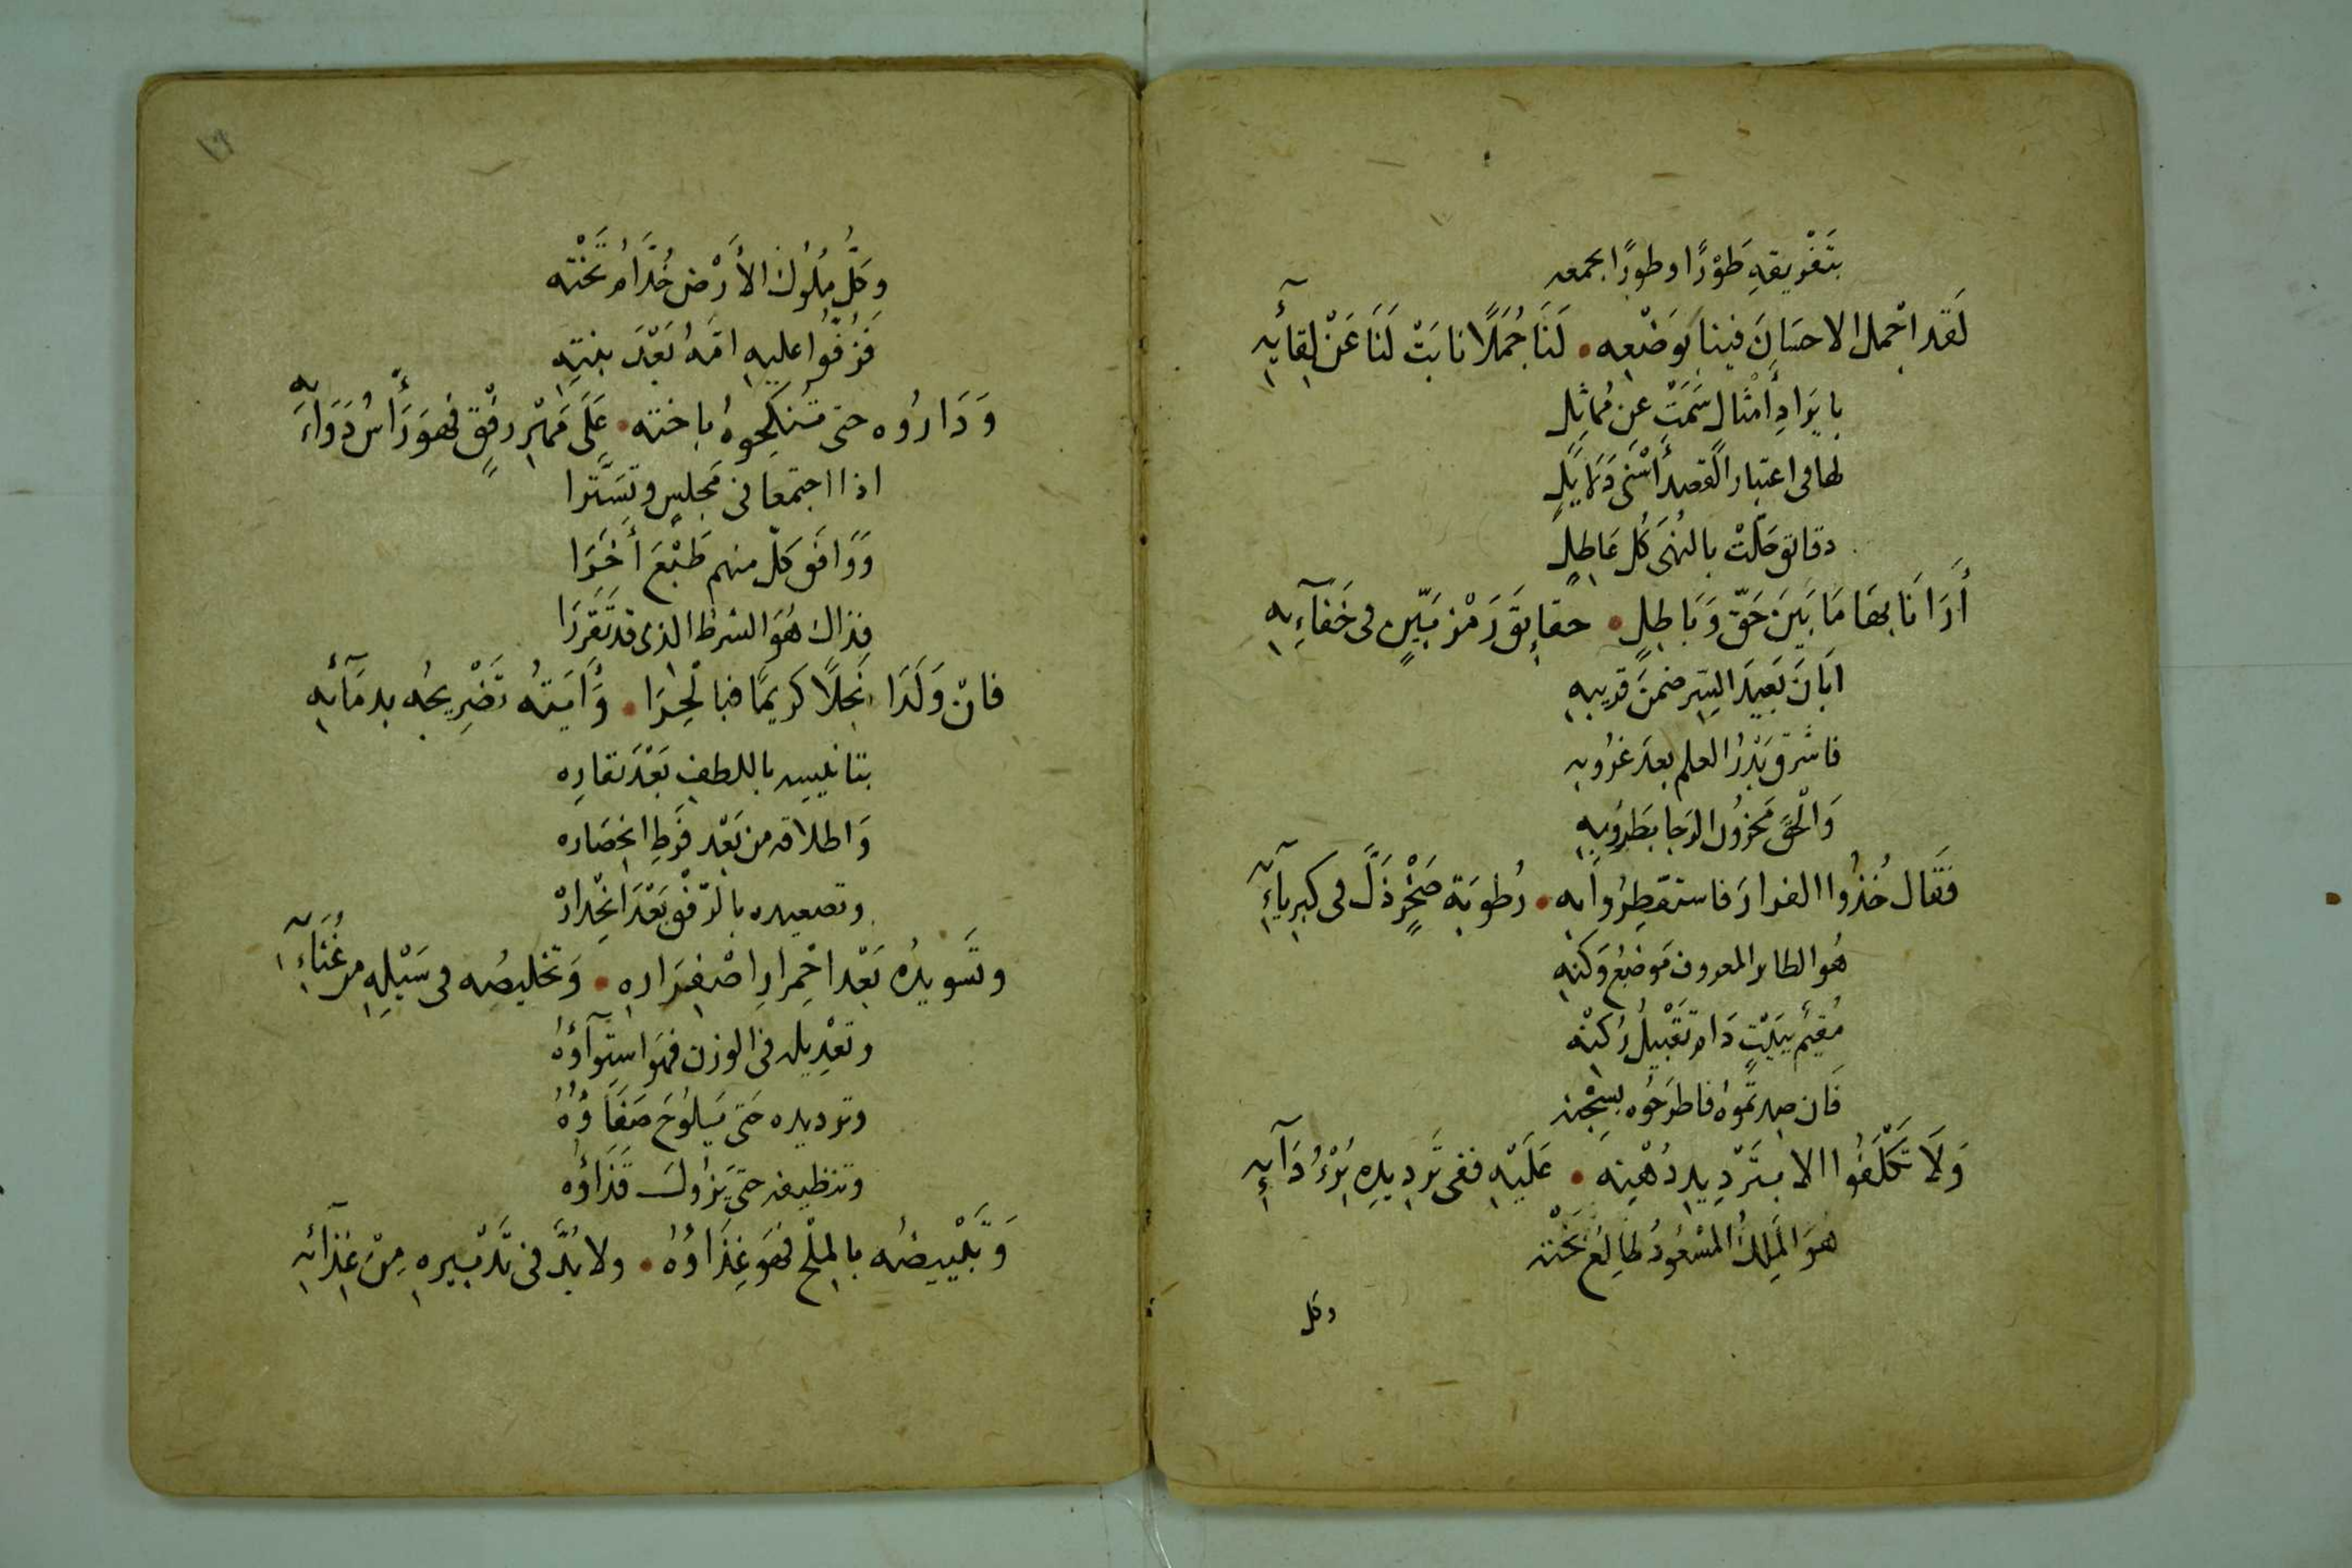 بتَفْرِيقِهِ طَوْرًا وطورًا بجمعه
لَقَد اجْمل الاحسَانَ فينا بوَضْعِه • لَنَا جُمَلًا نابَتْ لَنَا عَنْ لِقآئِهِ
بايرَادِ أمْثال سَمَتْ عن مُماثِل
لها فى اعتبار القصد أسْنَى دَلَايِلِ
دقائق حَلّتْ بالنُهَى كُل عَاطِلٍ
أَرَانَا بهَا مَا بَينَ حَقّ وَبَاطِلٍ • حقايقَ رَمْز بَيّنٍ فى خَفَآءِهِ
ابَانَ بَعِيدَ السِّر ضمنَ قريبِهِ
فاشرقَ بَدْرُ العلم بعدَ غرُوبِهِ
وَالْحقَ مَحزُونَ الرَجا بطَرُوبِهِ
فَقَال خُذُوا الفرارَ فاستقطِرُوا بِهِ • رُطوبَةِ صَخْرٍ ذَلَّ فى كبريآئِهِ
هُو الطاير المعروف مَوضِعُ وَكنِهِ
مُقيْم ببَيْتٍ دَام تَقْبيلُ رُكنْهِ
فَان صدتمُوهُ فاطرَحُوه بسِجْنه
وَلَا تَكْلَفُوا الا بتَرْدِيدِ دُهْنِهِ • عَلَيْهِ ففى تَردِيدِهِ بُرْءُ دَآئِهِ
هُوَ الملِكُ المسْعُودُ طَالعُ بَخْتهِ
وكل
١٢
وكلُّ مُلُوك الأرْض خُدَّام تَخْته
فَزُفُّوا عليهِ امَّهُ بَعْدَ بنتِهِ
وَدَارُوه حتى تنكِحوهُ باخته • عَلَى مَهْر رفْقٍ فهوَ رَأسُ دَوَآئِه
اذا اجتمعَا فى مَجلسٍ وتسَتَّرا
وَوَافَق كلّ منهم طَبْعَ أخَرا
فذاك هُوَ الشرطُ الذى قد تقَررَا
فانْ وَلَدَا نَجلًا كريمًا فبالْحِرَا • وَأيَتهُ تضْرِيجُه بدمَآئِهِ
بتانيسِهِ باللطفِ بَعْدَ نفارِه
وَاطلاقه من بَعْد فَرطِ انحصَاره
وتصعيده بالرّفْقِ بَعْدَ انحْدارْ
وتَسويدُه بَعْد احْمرارِ اصْفِرَاره • وَتخليصُه فى سَيْلِهِ من غُثآئِه
وتعْدِيله فى الوزن فهوَ استِوآؤهُ
وترديده حَتى يَلوُحَ صَفَاؤُهُ
وتنظيفه حتى يَزُولَ قَذَاؤُه
وَتَبْييضُه بالملْح فهوَ غِذَاؤُهُ • ولابُدَّ فى تَدْبيرِهِ مِنْ غِذآئِهِ